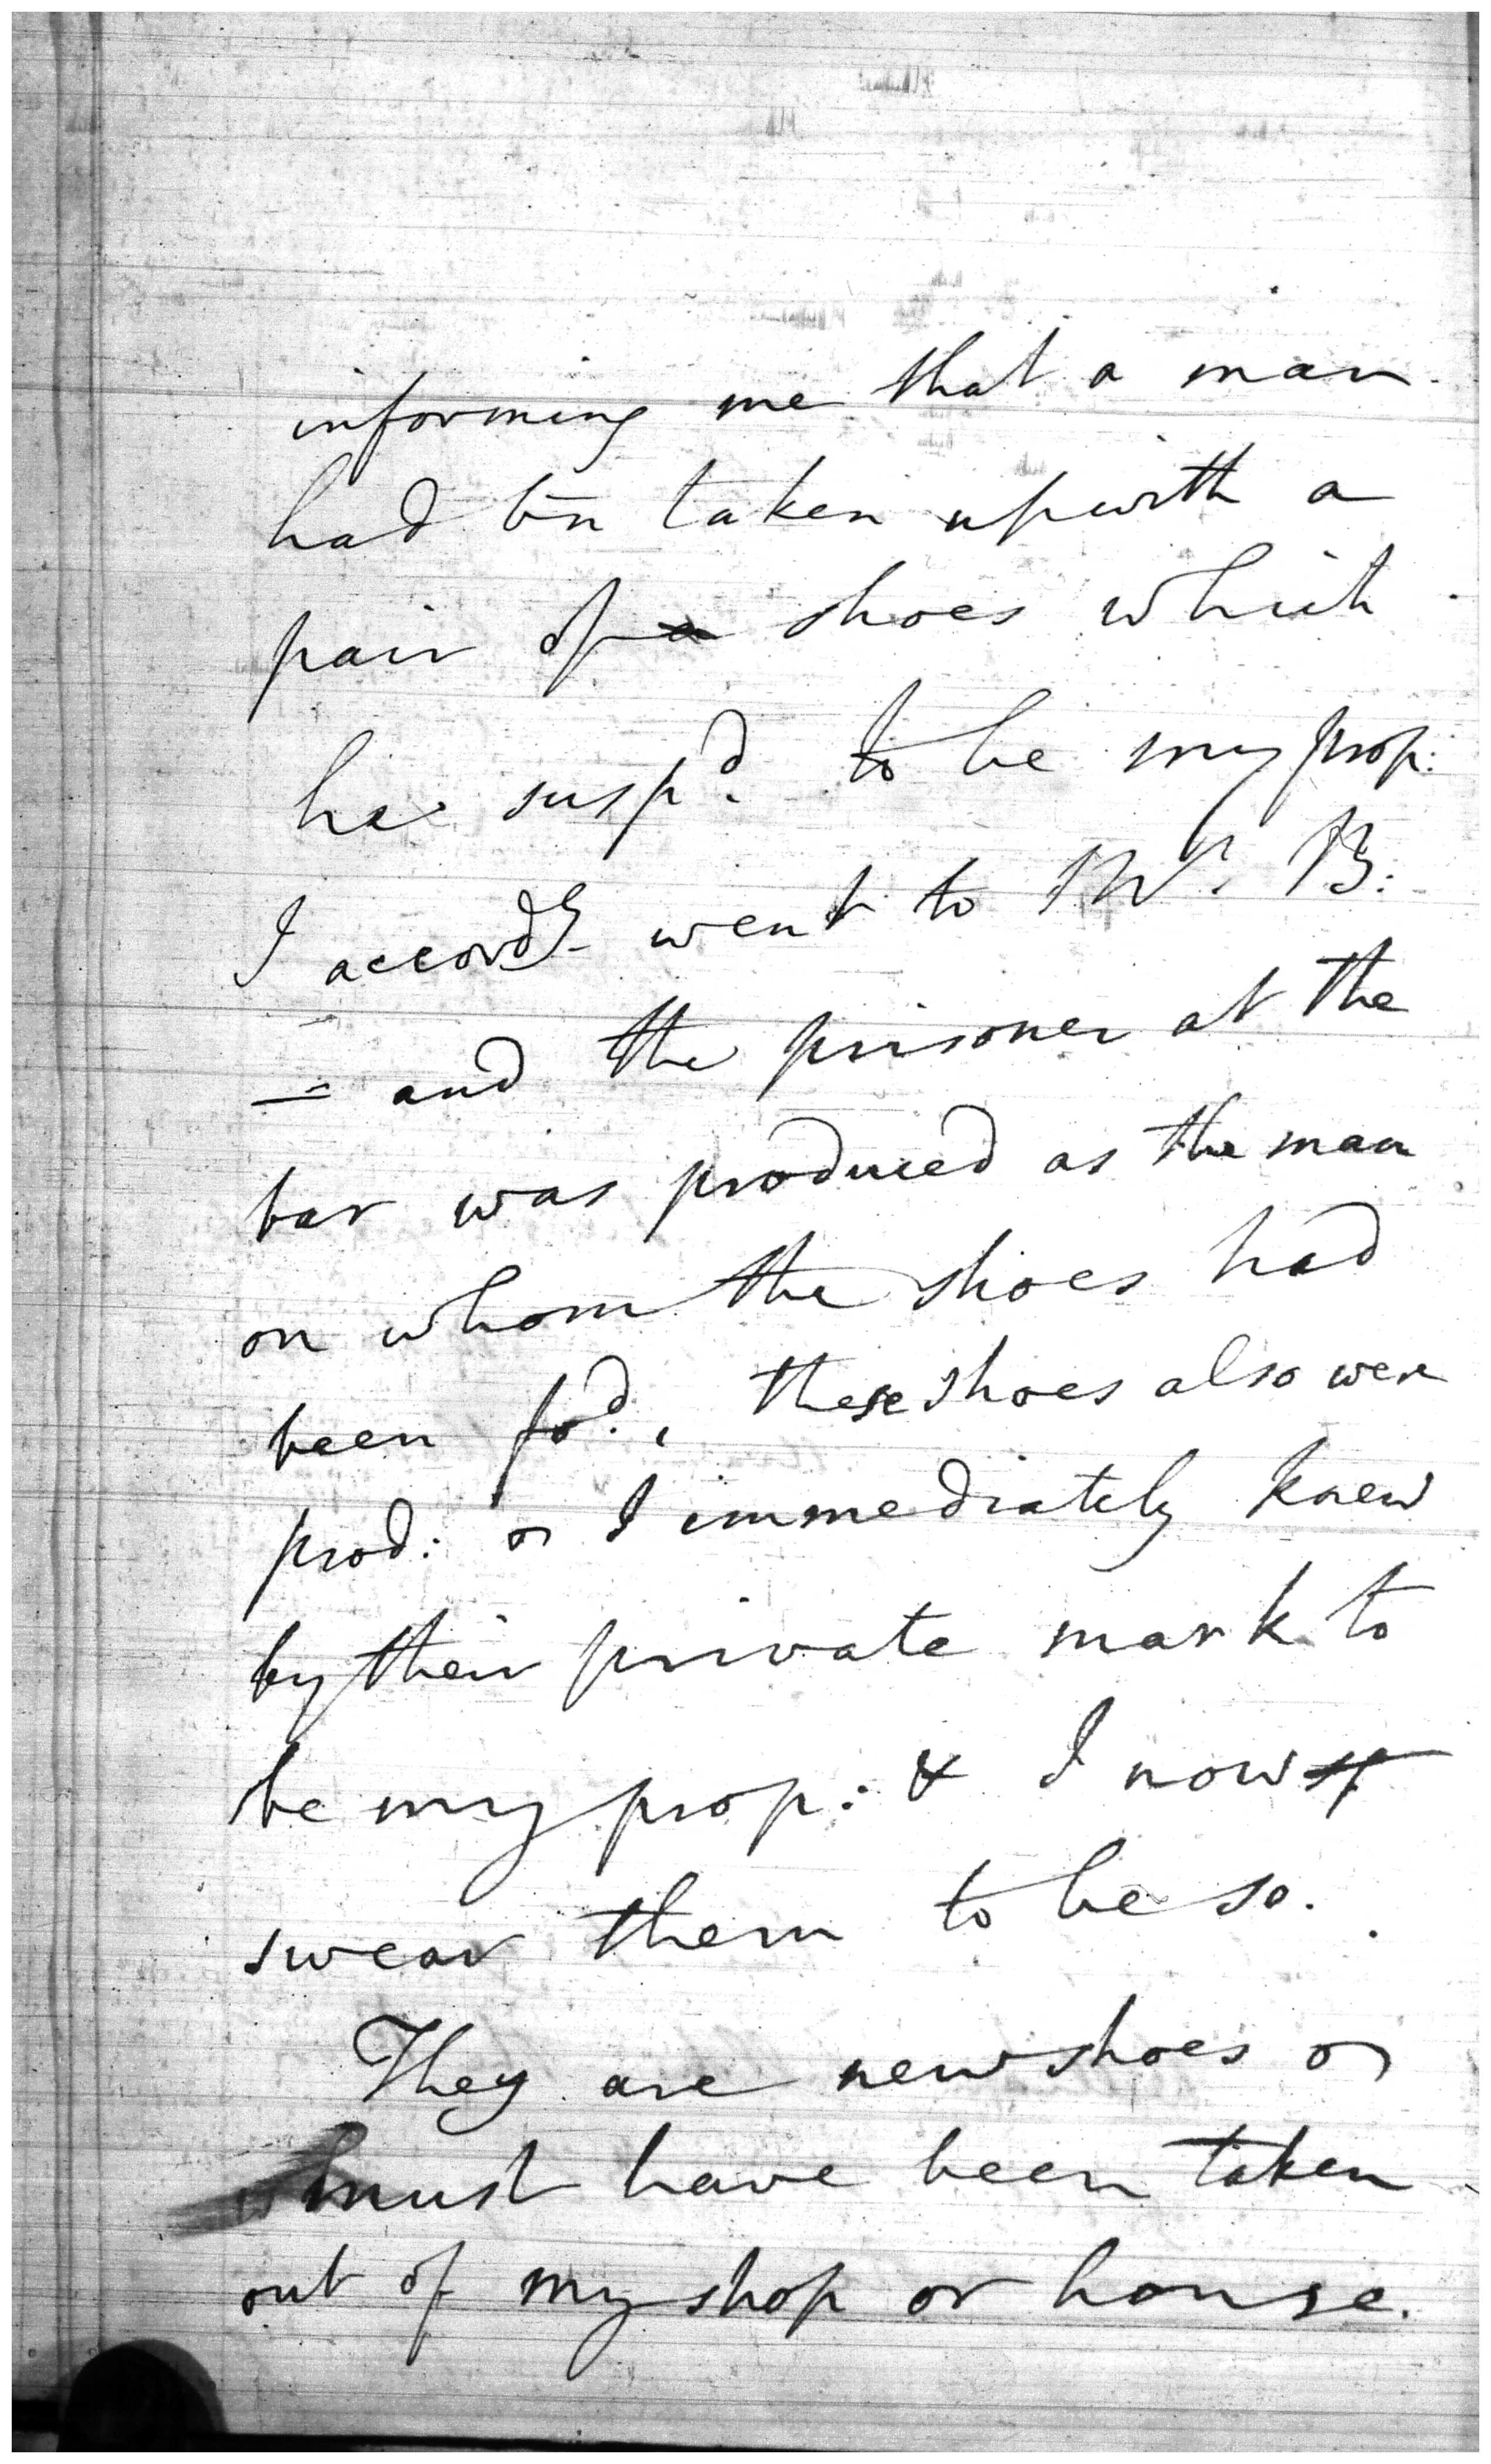 informing me that a man
had bn taken up with a
pair of a shoes which
he susp.d to be my prop:
I accordy went to Mr. B:
= and the prisoner at the
bar was produced as the man
on whom the shoes had
been fo.d, these shoes also were
prod: & I immediately knew
by their private mark to
be my prop: & I now
swear them to be so.
They are new shoes &
must have been taken
out of my shop or house.